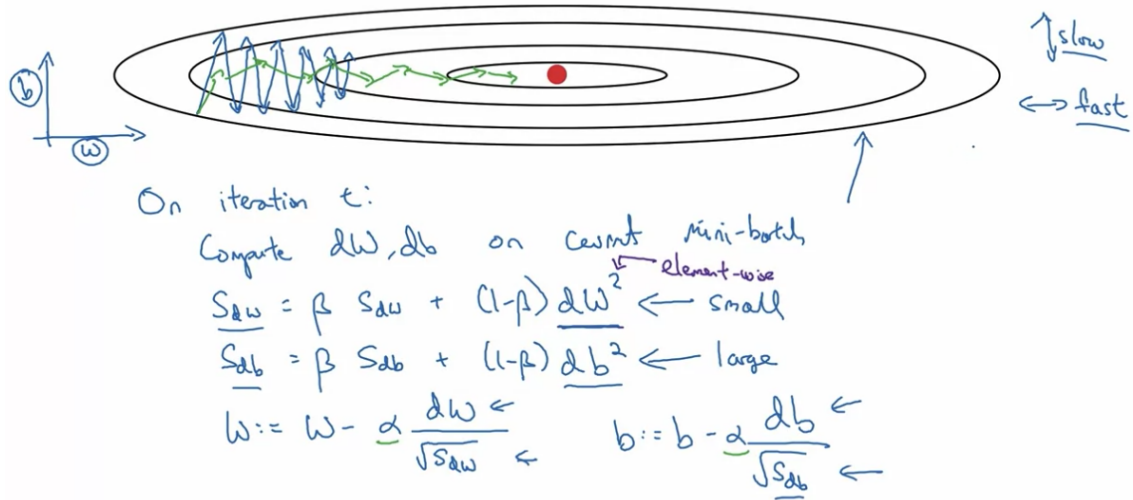 slow
fast
b
w
On iteration t:
Compute dW, db on current mini-batch
element-wise
S_dw = β S_dw + (1-β) dW² ← small
S_db = β S_db + (1-β) db² ← large
W := W - α dW / √S_dw ← b := b - α db / √S_db ←